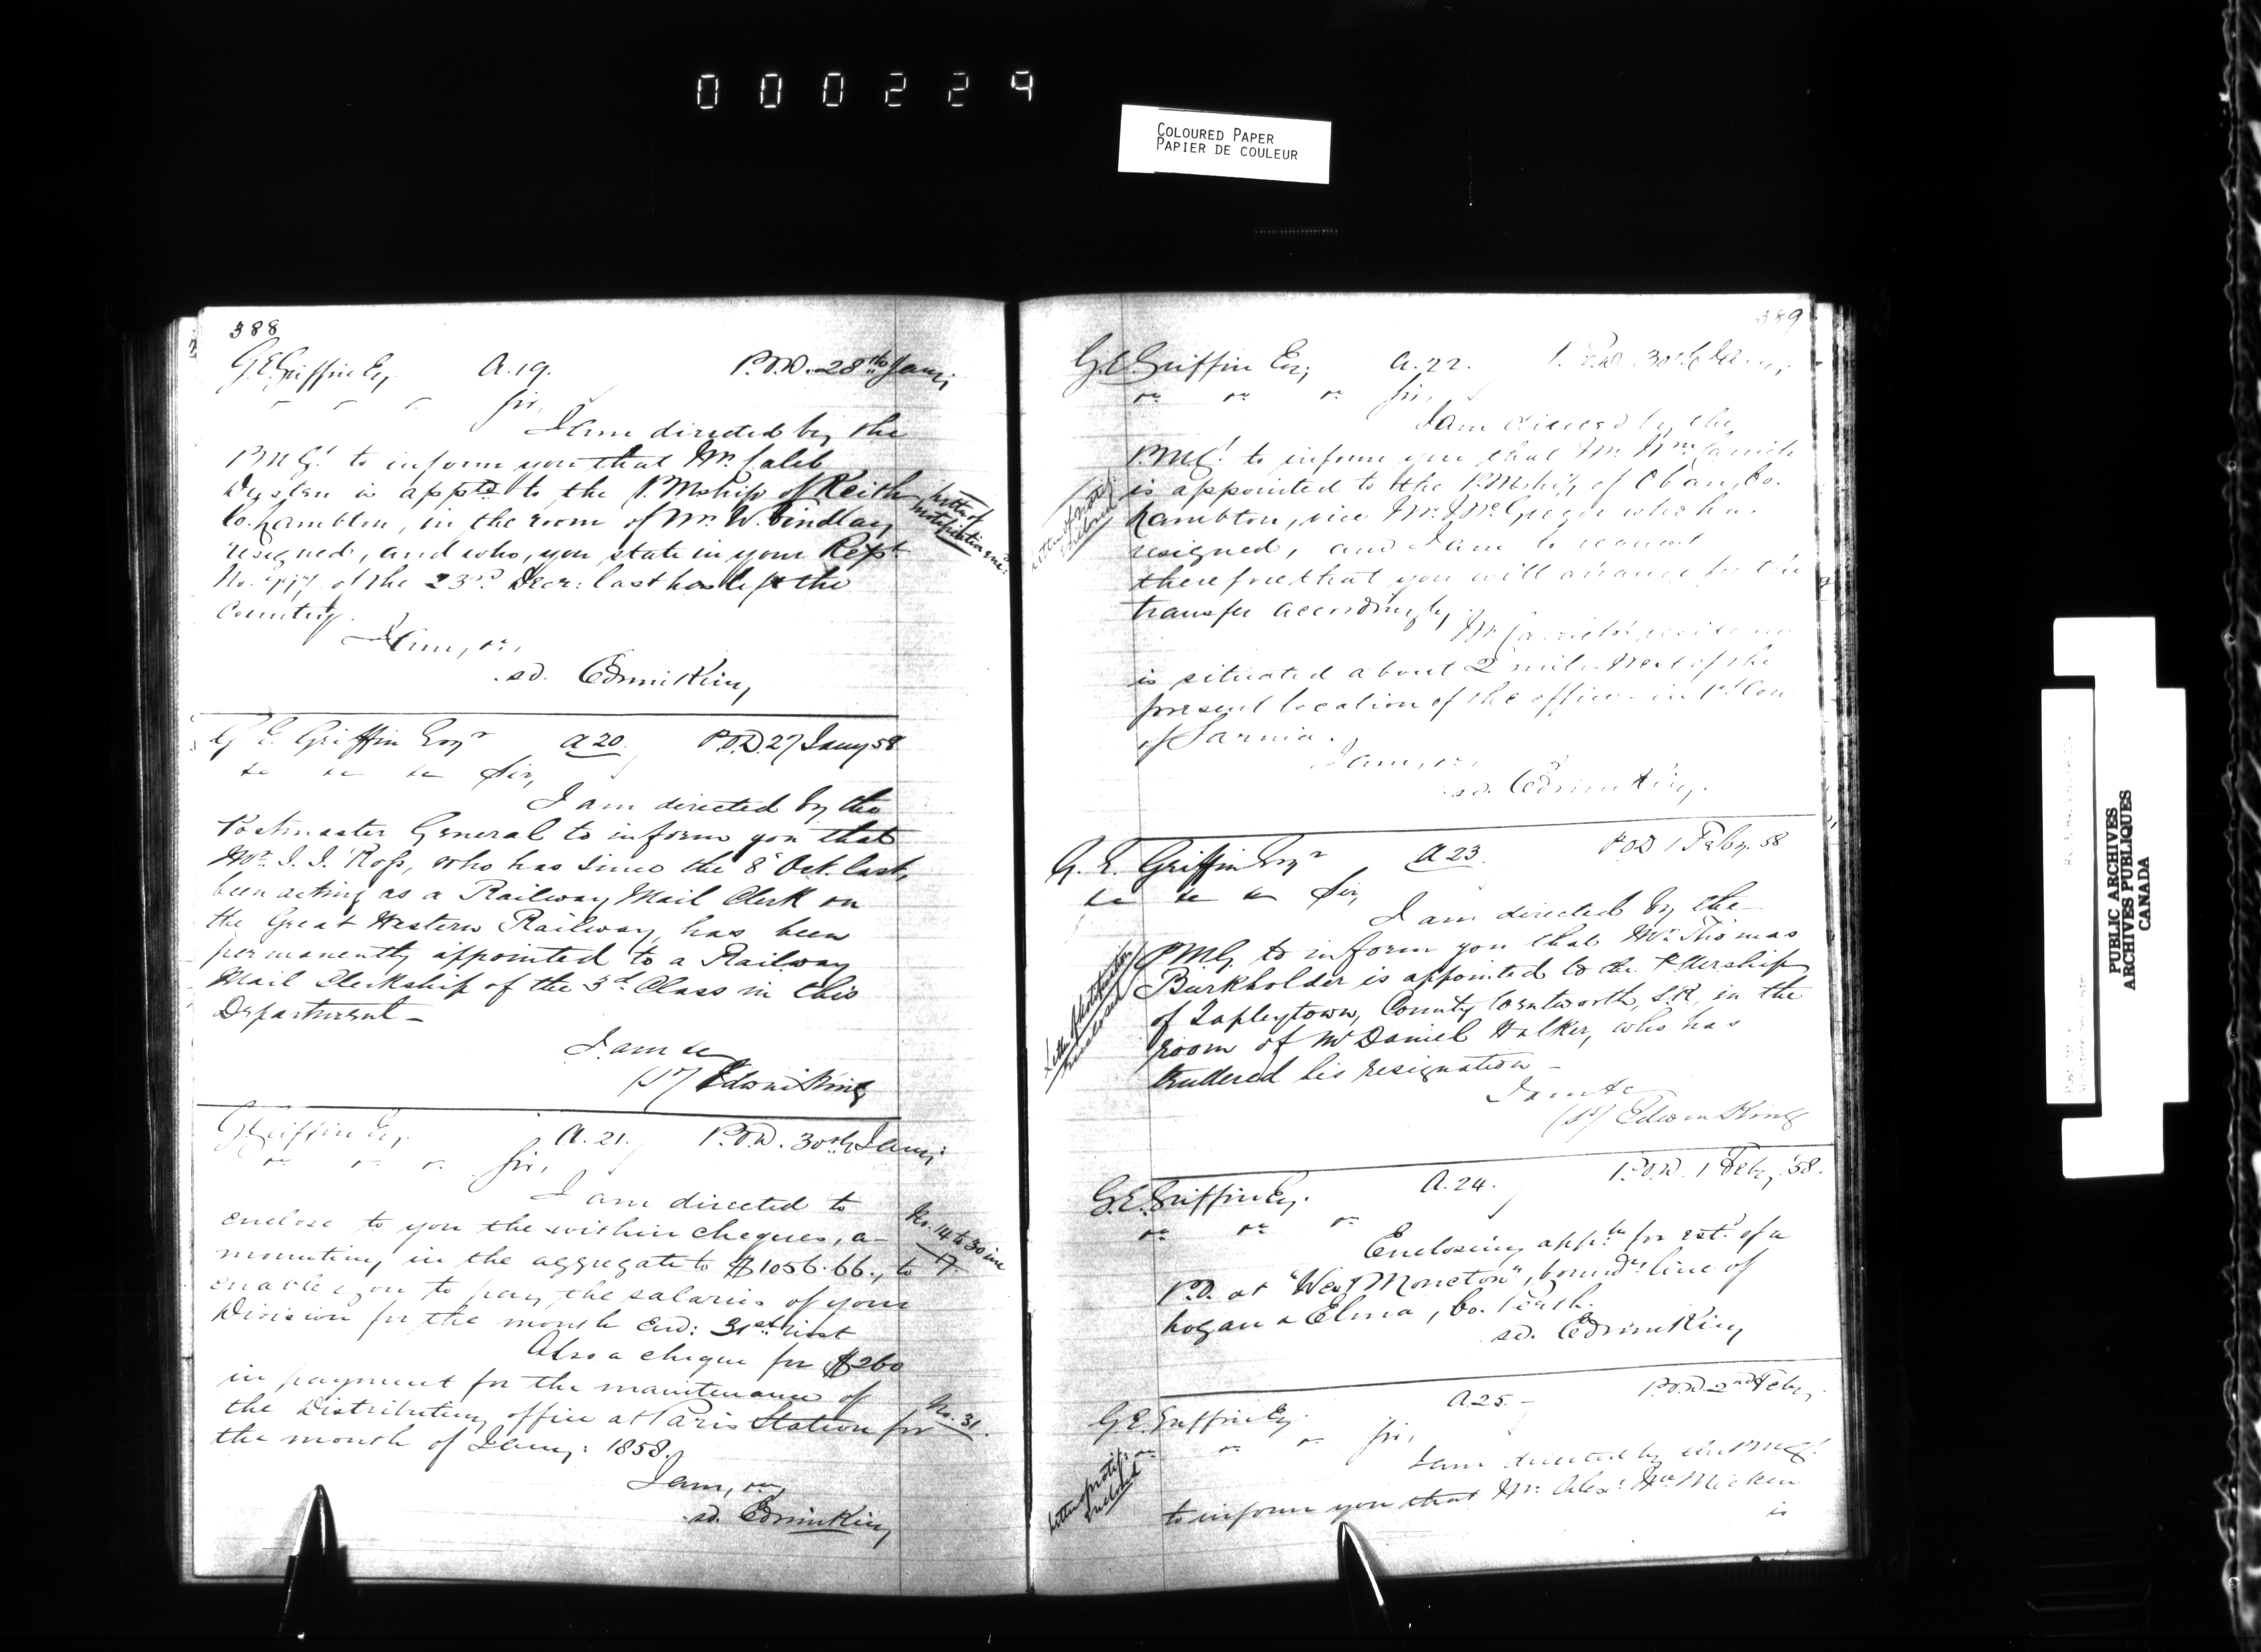 000229
COLOURED PAPER
PAPIER DE COULEUR
388
G.E. Griffin Esq. A.19. P.O.D. 28th Jany;
Sir,
I am directed by the
P.M.G! to inform you that Mr. Caleb
is apptd to the P.Mship of Keith
Co. Lambton, in the room of Mr. W. Findlay
resigned, and who, you state in your Rept
No. 997 of the 23rd Decr: last has left the
Country.
Letter of
notification
I am, &c,
sd. Edwin King
G E. Griffin Esqr A 20. P.O.D. 27 Jany 58
&c &c &c Sir,
I am directed by the
Postmaster General to inform you that
Mr. J. J. Ross, who has since the 8 Oct. last,
been acting as a Railway Mail Clerk on
the Great Western Railway, has been
permanently appointed to a Railway
Mail Clerkship of the 3d Class in this
Department –
I am &c
(Sd) Edwin King
G.E. Griffin Esq. A. 21. P.O.D. 30th Jany;
&c &c &c Sir,
I am directed to
enclose to you the within cheques, a-
mounting in the aggregate to $1056.66., to
enable you to pay the salaries of your
Division for the month end: 31st inst
No. 14 to 30 inc
Also a cheque for $260
in payment for the maintenance of
the Distributing office at Paris Station for
the month of Jany: 1858.
No. 31.
I am, &c,
sd. Edwin King
389
G.E. Griffin Esq; A. 22. P.O.D. 30th Jany;
&c &c &c Sir,
I am directed by the
P.M.G! to inform you that Mr. Wm.
is appointed to the P.Mship of Oban, Co.
Lambton, vice Mr. McGregor who has
resigned, and I am to request
therefore that you will arrange for the
transfer accordingly.
Letter of notif.
enclosed
Mr. residence
is situated about 2 miles West of the
present location of the office in 1st Con
of Sarnia.
I am, &c,
sd. Edwin King.
G. E. Griffin Esqr A 23. P.O.D 1 Feby. 58
&c &c &c Sir,
I am directed by the
PMG. to inform you that Mr. Thomas
Burkholder is appointed to the P. Mership
of Tapleytown, County Wentworth, S.R, in the
room of Mr Daniel Walker, who has
tendered his resignation –
Letter of Notification
enclosed
I am &c
(Sd) Edwin King
G.E. Griffin Esq. A. 24. P.O.D. 1 Feby '58.
&c &c &c
Enclosing appln for est. of a
P.O. at "West Moncton", boundy line of
Logan & Elma, Co. Perth.
sd. Edwin King
G.E. Griffin Esq. A 25.– P.O.D. 2nd Feby
&c &c &c Sir,
I am directed by the P.M.G!
to inform you that Mr. Alexr McMicken
is
Letter of notif:
enclosed
PUBLIC ARCHIVES
ARCHIVES PUBLIQUES
CANADA